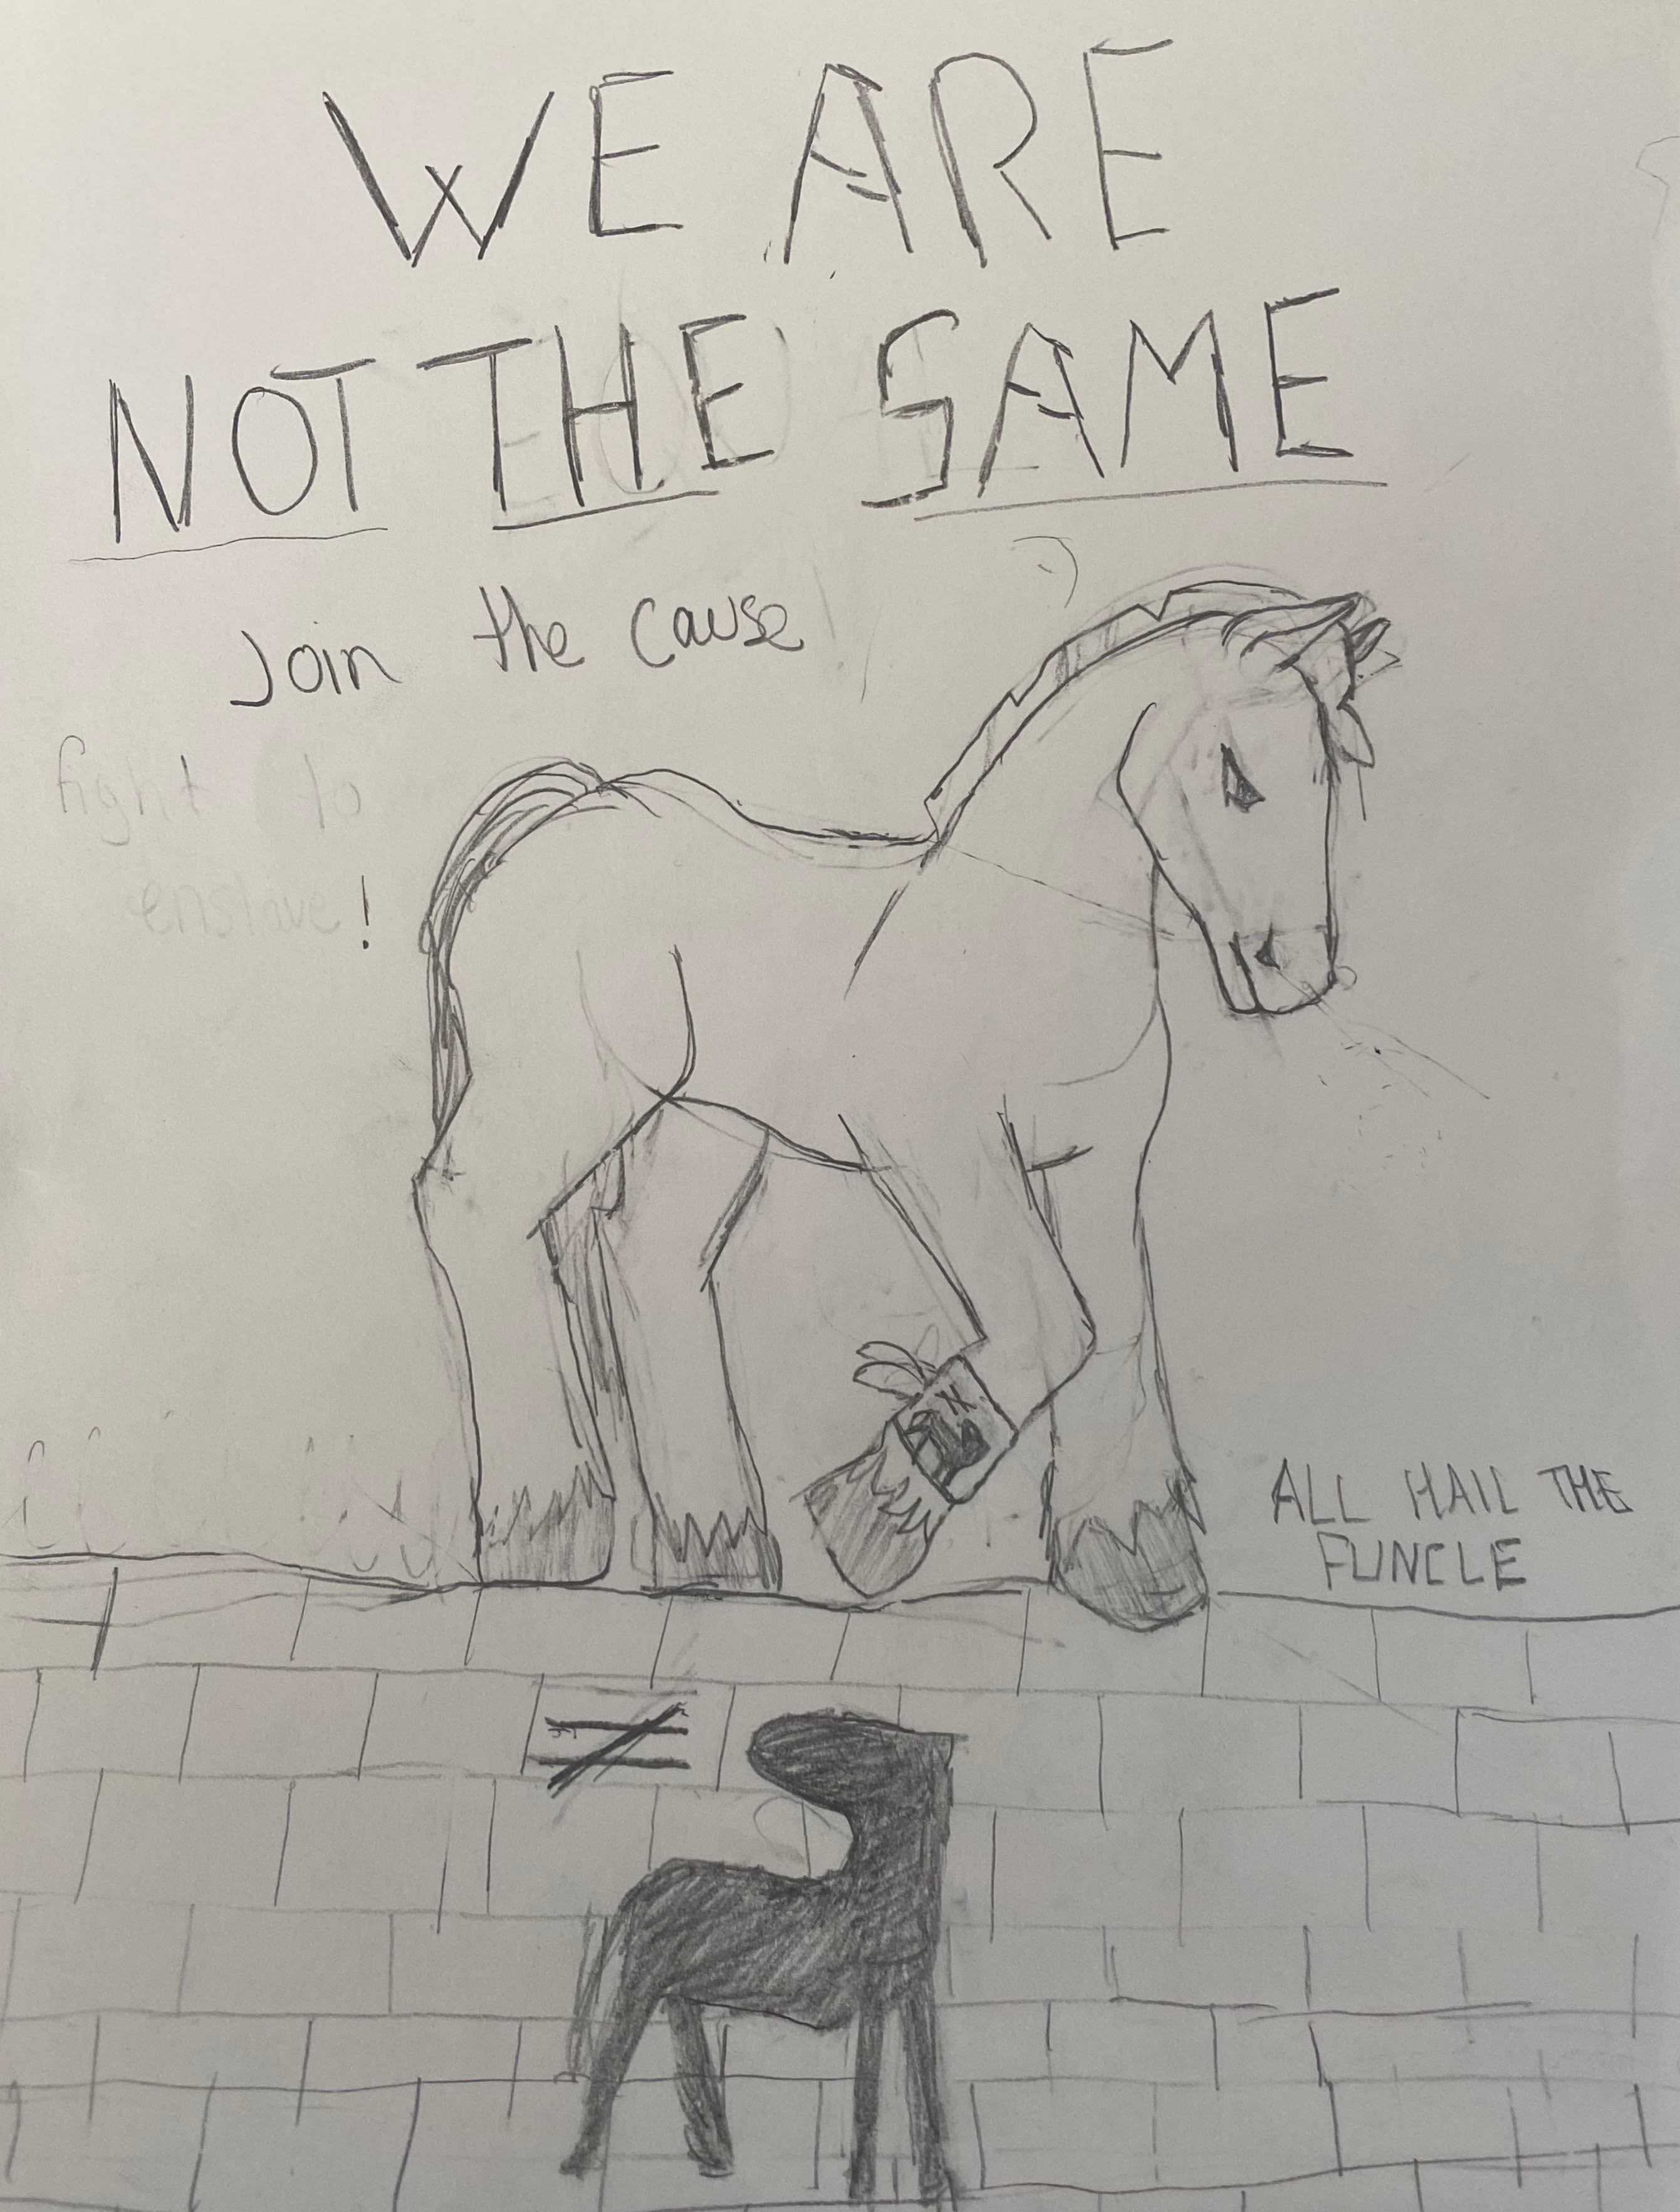 WE ARE
NOT THE SAME
Join the cause
fight to
enslave!
ALL HAIL THE
FUNCLE
≠